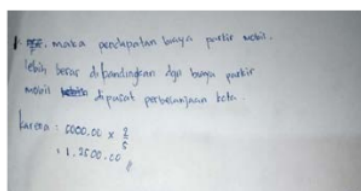 maka pendapatan biaya parkir mobil.
lebih besar dibandingkan dgn biaya parkir
mobil dipusat perbelanjaan kota.
karena : 5000.00 × 2/5
= 1.2500.00